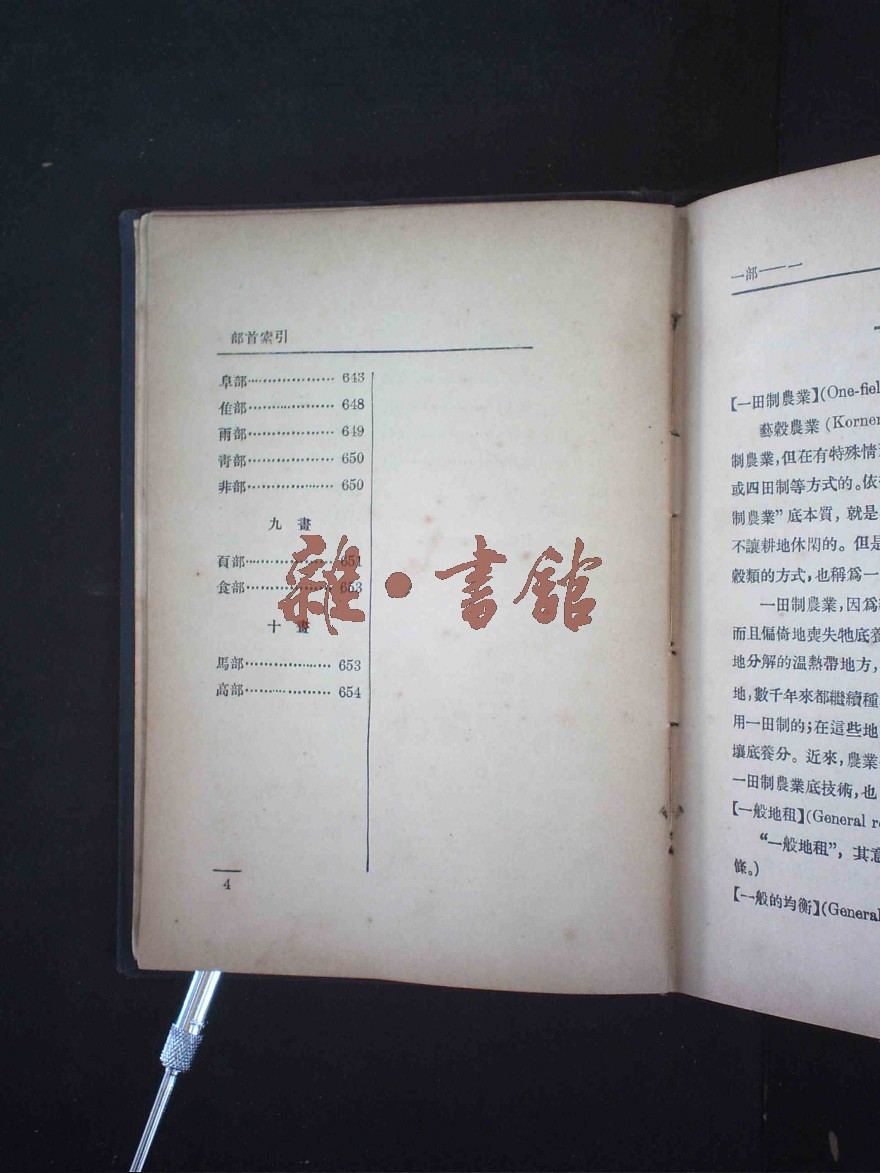 部首索引
阜部⋯⋯⋯⋯⋯⋯ 643
隹部⋯⋯⋯⋯⋯⋯ 648
雨部⋯⋯⋯⋯⋯⋯ 649
青部⋯⋯⋯⋯⋯⋯ 650
非部⋯⋯⋯⋯⋯⋯ 650
九 畫
頁部⋯⋯⋯⋯⋯⋯ 651
食部⋯⋯⋯⋯⋯⋯ 653
十 畫
馬部⋯⋯⋯⋯⋯⋯ 653
高部⋯⋯⋯⋯⋯⋯ 654
4
雜·書館
一部——一
【一田制農業】(One-fiel
藝穀農業 (Korner
制農業,但在有特殊情
或四田制等方式的。依
制農業”底本質,就是
不讓耕地休閑的。但是
穀類的方式,也稱爲一
一田制農業,因爲
而且偏倚地喪失牠底養
地分解的溫熱帶地方,
地,數千年來都繼續種
用一田制的;在這些地
壤底養分。近來,農業
一田制農業底技術,也
【一般地租】(General re
“一般地租”,其意
條。)
【一般的均衡】(General